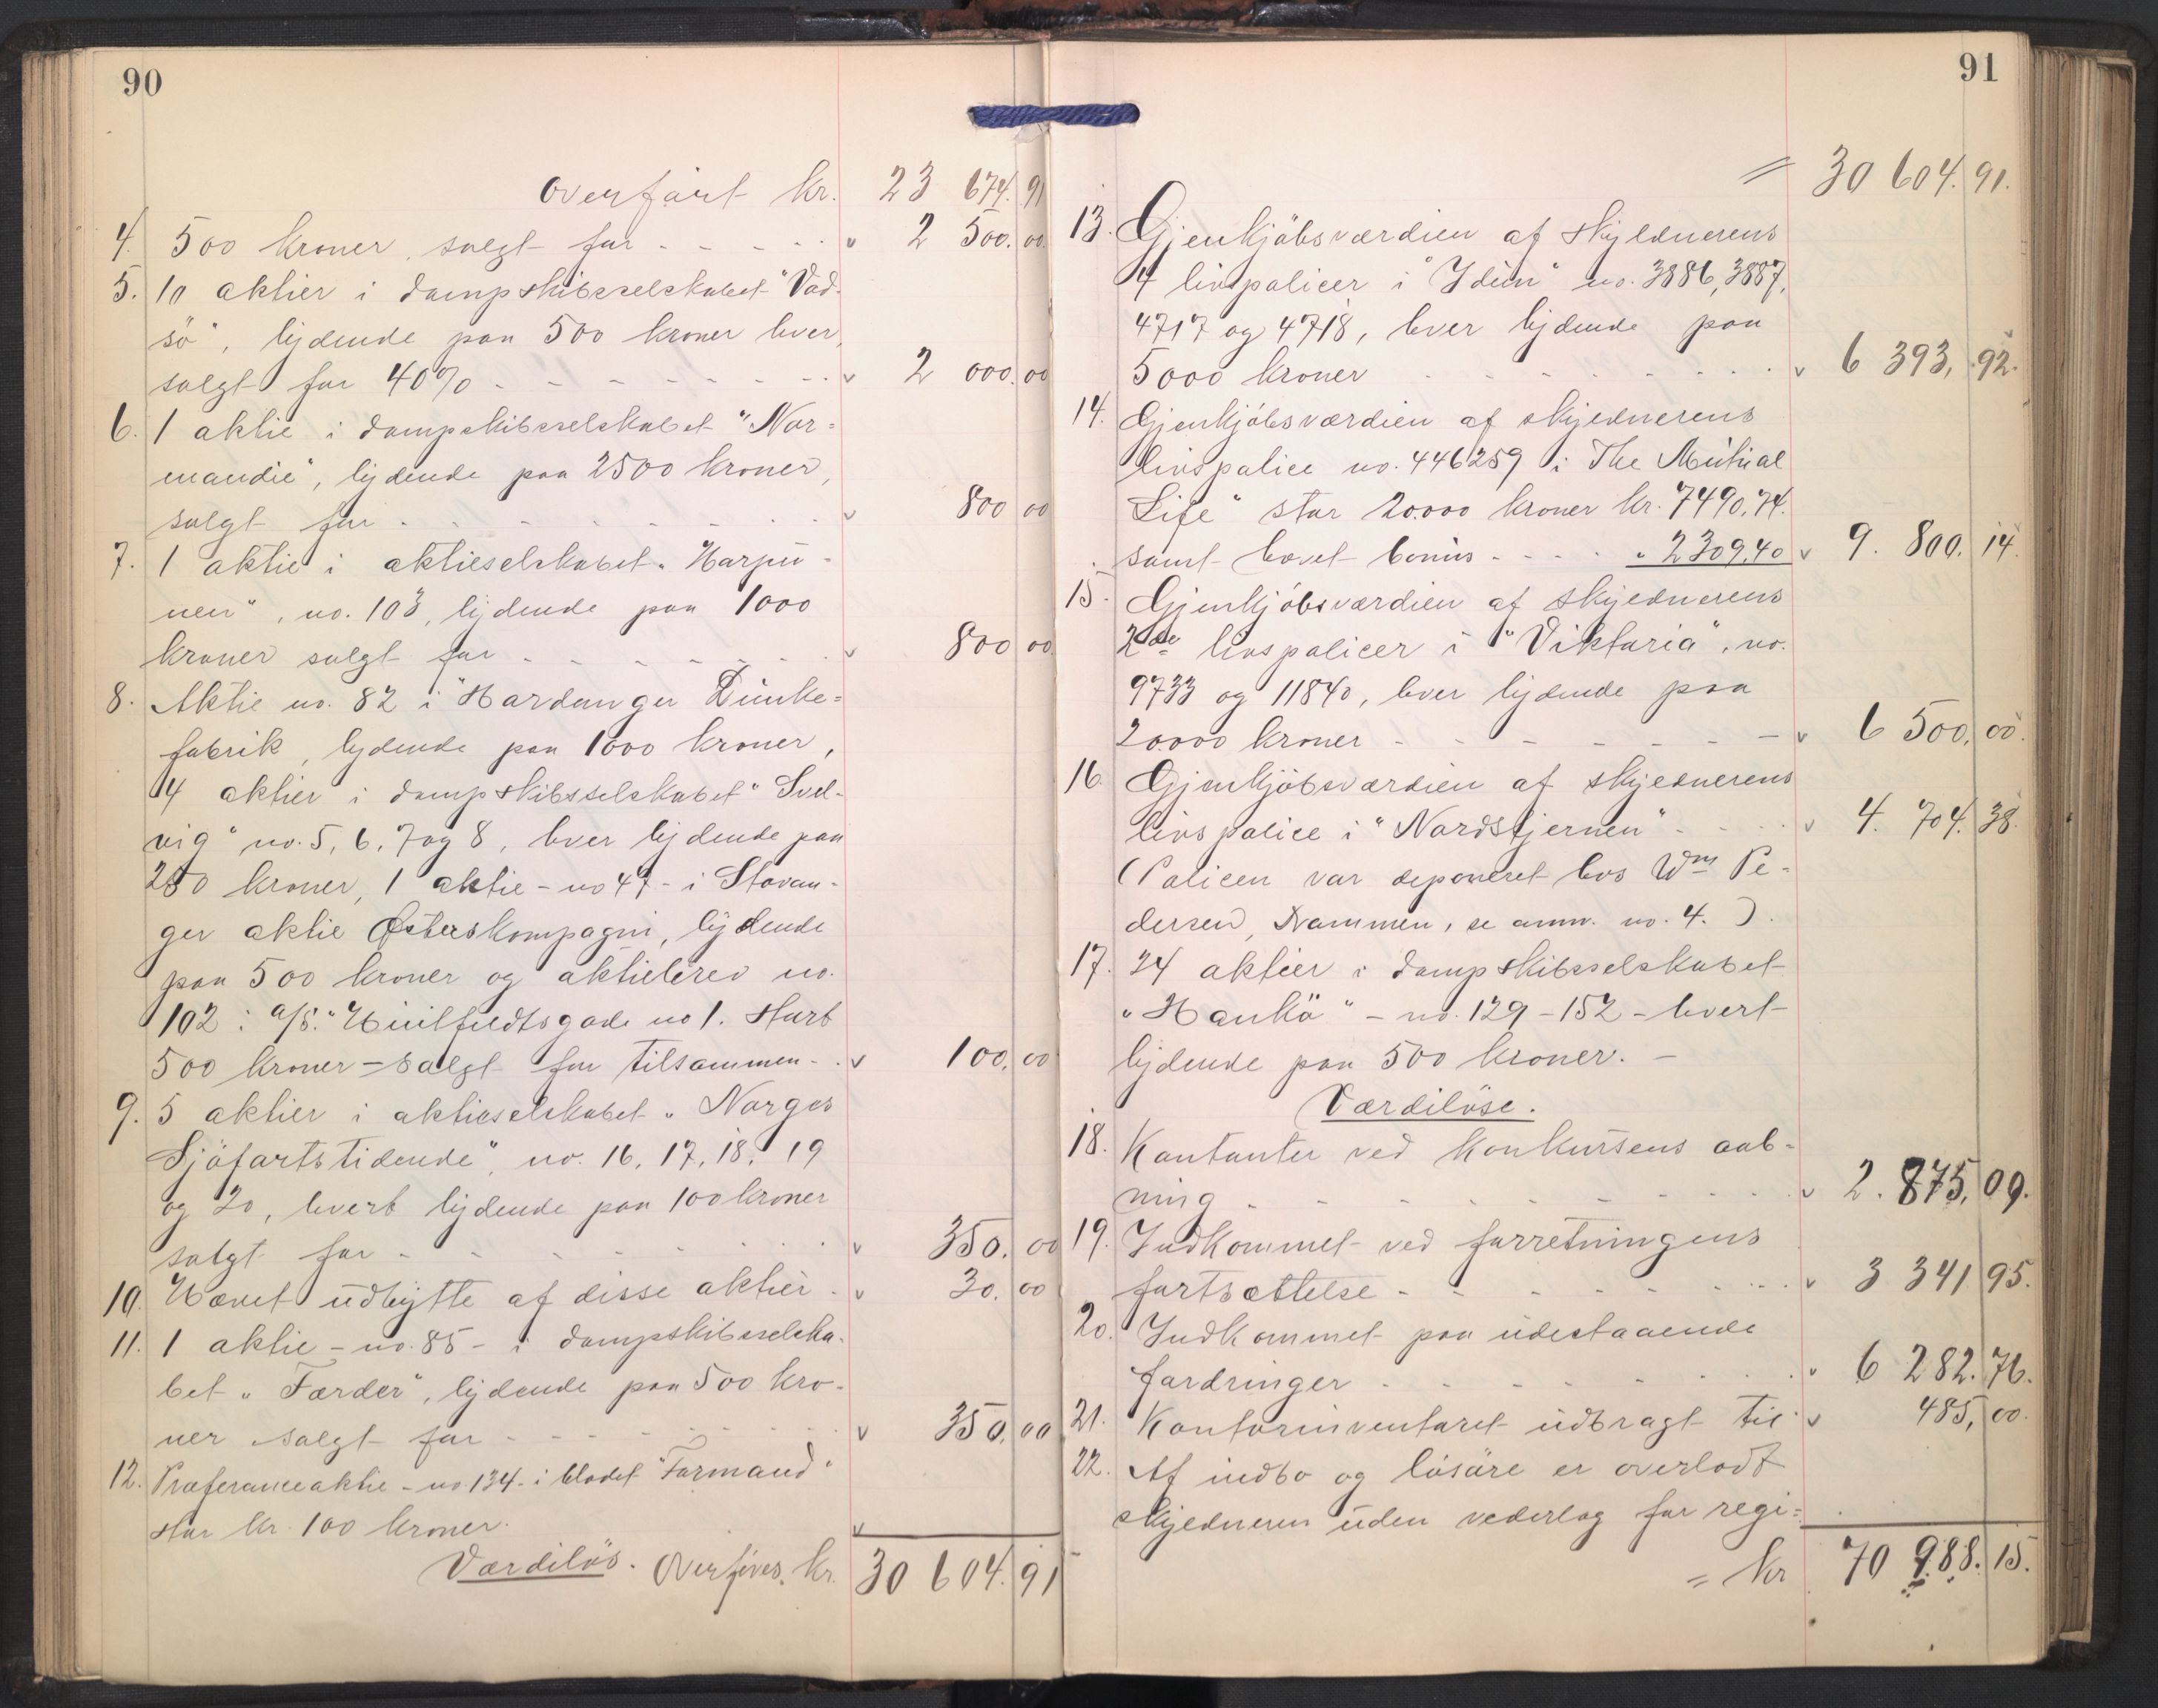 90
overført kr. 23 674. 91
4. 500 kroner, solgt for - - - - - 2 500. 00
5. 10 aktier i dampskibsselskabet "Vad-
sö", lydende paa 500 kroner hver,
solgt for 40% - - - - - - - 2 000. 00
6. 1 aktie i dampskibsselskabet "Nor=
mandie", lydende paa 2500 kroner,
solgt for - - - - - - - 800 00
7. 1 aktie i aktieselskabet "Harpu-
nen", no. 103, lydende paa 1000
kroner solgt for - - - - - - - 800 00
8. Aktie no. 82 i "Hardanger Dünke=
fabrik, lydende paa 1000 kroner,
4 aktier i dampskibsselskabet "Svel-
vig" no. 5, 6, 7 og 8, hver lydende paa
250 kroner, 1 aktie - no 47 - i Stavan-
ger aktie Østerskompagni, lydende
paa 500 kroner og aktiebrev no.
102 i a/s. "Huitfeldtsgade no 1. stort
500 kroner - solgt for tilsammen - 100. 00
9. 5 aktier i aktieselskabet "Norges
Sjöfartstidende", no. 16, 17, 18, 19
og 20, hvert lydende paa 100 kroner
solgt for - - - - - - - 350. 00
10. Hævet udbytte af disse aktier - 30. 00
11. 1 aktie - no. 85 - i dampskibsselska-
bet "Færder", lydende paa 500 kro-
ner solgt for - - - - - - - 350. 00
12. Præferanceaktie - no 134 - i bladet "Farmand"
stor kr. 100 kroner.
Værdilös. Overföres. kr. 30 604. 91
91
= 30 604. 91.
13. Gjenkjöbsværdien af skyldnerens
4 livspolicer i "Idun" no. 3886, 3887,
4717 og 4718, hver lydende paa
5000 kroner - - - - - - - 6 393, 92.
14. Gjenkjöbsværdien af skyldnerens
livspolice no. 446259 i "The Mutual
Life" stor 20.000 kroner kr. 7490.74.
samt hævet bonus - - - - " 2309.40 9. 800. 14.
15. Gjenkjöbsværdien af skyldnerens
2de livspolicer i "Viktoria", no.
9733 og 11840, hver lydende paa
20.000 kroner - - - - - - - 6 500, 00.
16. Gjenkjöbsværdien af skyldnerens
livspolice i "Nordstjernen" - - - 4. 704. 38.
(Policen var deponeret hos Wm Pe-
dersen, Drammen, se anm. no. 4.).
17. 24 aktier i dampskibsselskabet
"Hankö" - no. 129 - 152 - hvert
lydende paa 500 kroner. -
Værdilöse.
18. Kontanter ved konkursens aab-
ning - - - - - - - 2. 875, 09.
19. Indkommet ved forretningens
fortsættelse - - - - - - - 3 341 95.
20. Indkommet paa udestaaende
fordringer - - - - - - - 6 282. 76.
21. Kontorinventaret udbragt til 485, 00.
22. Af indbo og lösöre er overladt
skyldneren uden vederlag for regi=
= kr 70 988. 15.